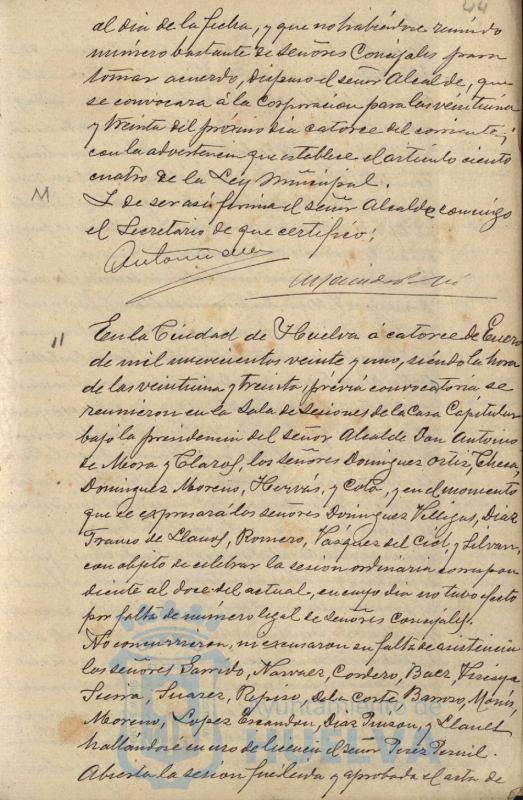 44
al dia de la fecha, y que no habiéndose reunido
número bastante de señores Concejales para
tomar acuerdo, dispuso el señor Alcalde, que
se convocara á la Corporacion para las veintiuna
y treinta del próximo dia catorce del corriente,
con la advertencia que establece el artículo ciento
cuatro de la Ley Municipal.
M
Y de ser asi firma el señor Alcalde conmigo
el Secretario de que certifico:
Antonio de
"
En la Ciudad de Huelva á catorce de Enero
de mil novecientos veinte y uno, siendo la hora
de las veintiuna y treinta, prévia convocatoria se
reunieron en la Sala de Sesiones de la Casa Capitular
bajo la presidencia del señor Alcalde Don Antonio
de Mora y Claros, los señores Dominguez Ortiz, Checa,
Dominguez Moreno, Hervás, y Coto, y en el momento
que se expresará los señores Dominguez Villegas, Diaz
Franco de Llanos, Romero, Vázquez del Cid, y Silvan,
con objeto de celebrar la sesion ordinaria correspon
diente al doce del actual, en cuyo dia no tuvo efecto
por falta de número legal de señores Concejales.
No concurrieron, ni escusaron su falta de asistencia
los señores Garrido, Narvaez, Cordero, Baez Vizcaya
Sierra, Suarez, Repiso, de la Corte Barroso, Monis,
Moreno, Lopez Escandon, Diaz Pinzon, y Llanes
hallándose en uso de licencia el señor Perez Pernil.
Abierta la sesion fué leida y aprobada el acta de
Ayuntamiento de
HUELVA